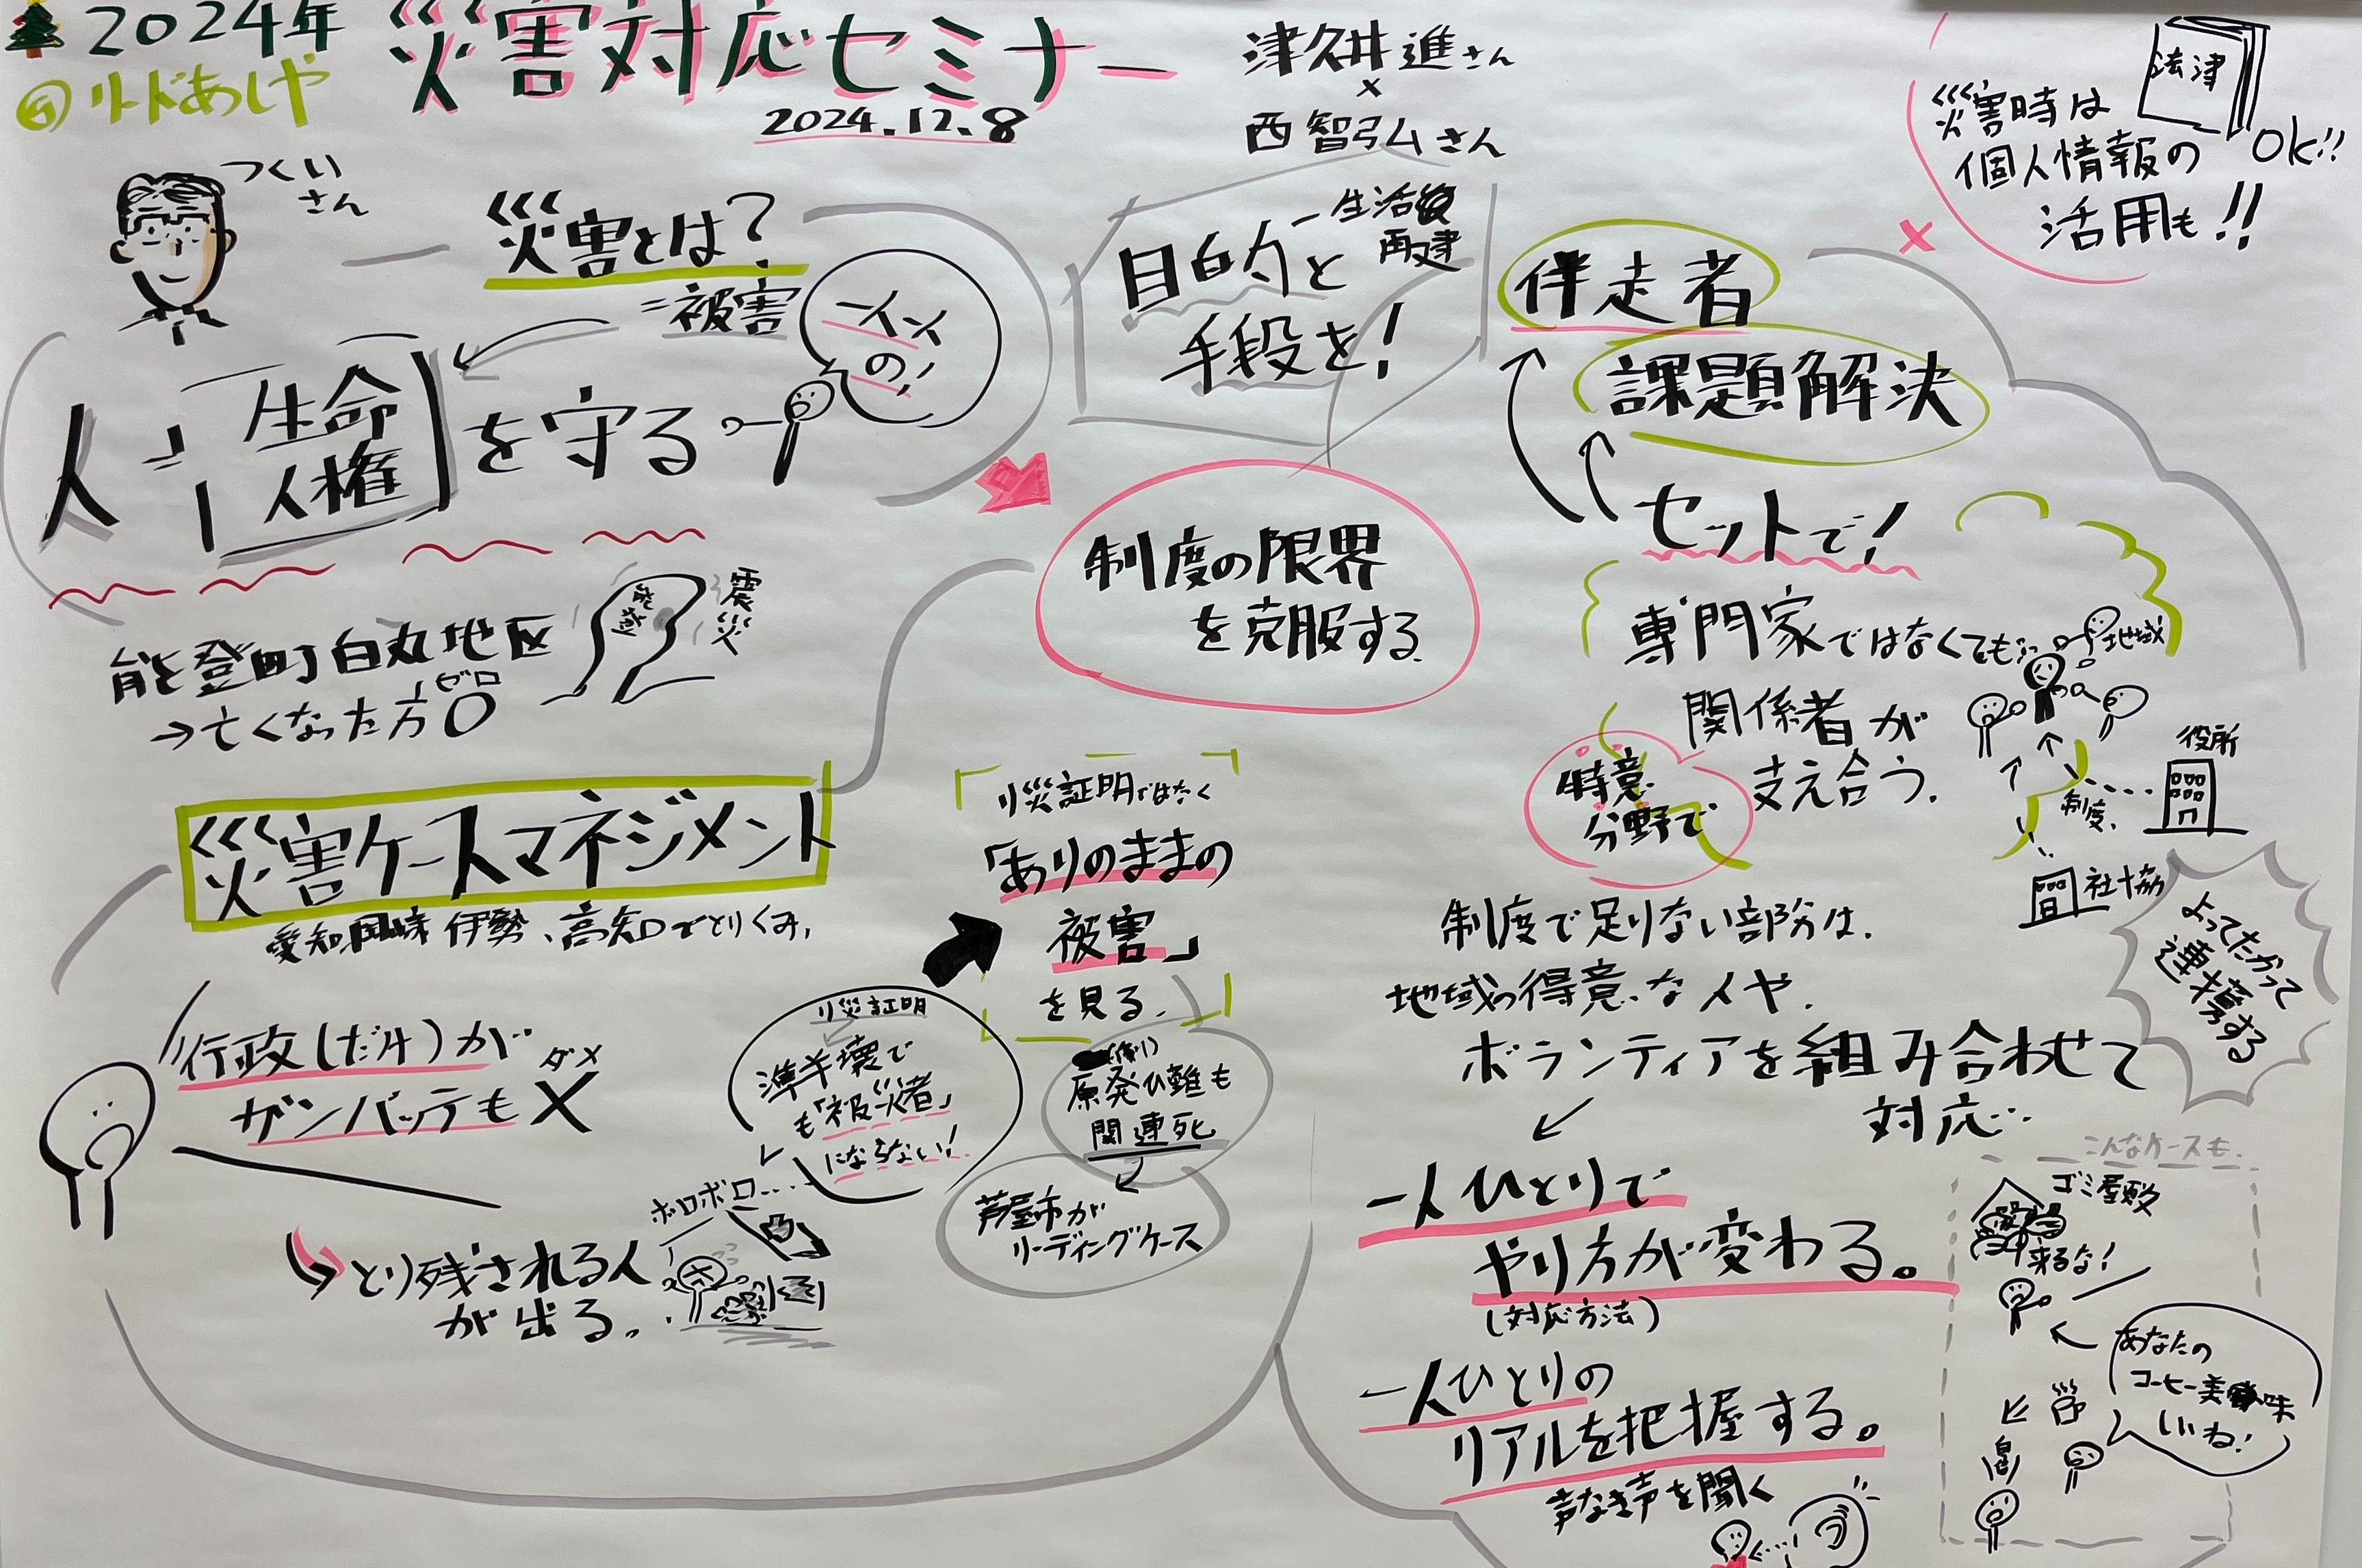 2024年
@リードあしや
災害対応セミナー
2024.12.8
津久井進さん
×
西智弘さん
つくい
さん
災害とは?
=被害
人
「生命
人権」
を守る
一人一人
の!
能登町白丸地区
→亡くなった方0
ゼロ
能登
震災
災害ケースマネジメント
愛知 岡崎 伊勢、高知でとりくみ、
行政(だけ)が
ガンバッテも×
ダメ
とり残される人
が出る。
ボロボロ....
り災証明
準半壊で
も「被災者」
にならない!
り災証明ではなく
「ありのままの
被害」
を見る.
(例)
原発ひ難も
関連死
芦屋市が
リーディングケース
目的と
―生活
再建
手段を!
制度の限界
を克服する.
伴走者
課題解決
セットで!
災害時は
個人情報の
活用も!!
法津
OK!!
専門家ではなくても..
地域
関係者が
得意
分野で
支え合う.
役所
制度.
社協
よってたかって
連携する
制度で足りない部分は.
地域の得意な人や.
ボランティアを組み合わせて
対応..
一人ひとりで
やり方が変わる。
(対応方法)
一人ひとりの
リアルを把握する。
声なき声を聞く
こんなケースも.
ゴミ屋敷
来るな!
あなたの
コーヒー美味
いいね!